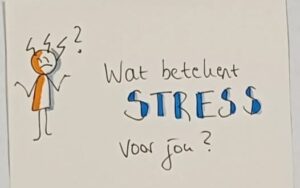 ?
Wat betekent
STRESS
voor jou?